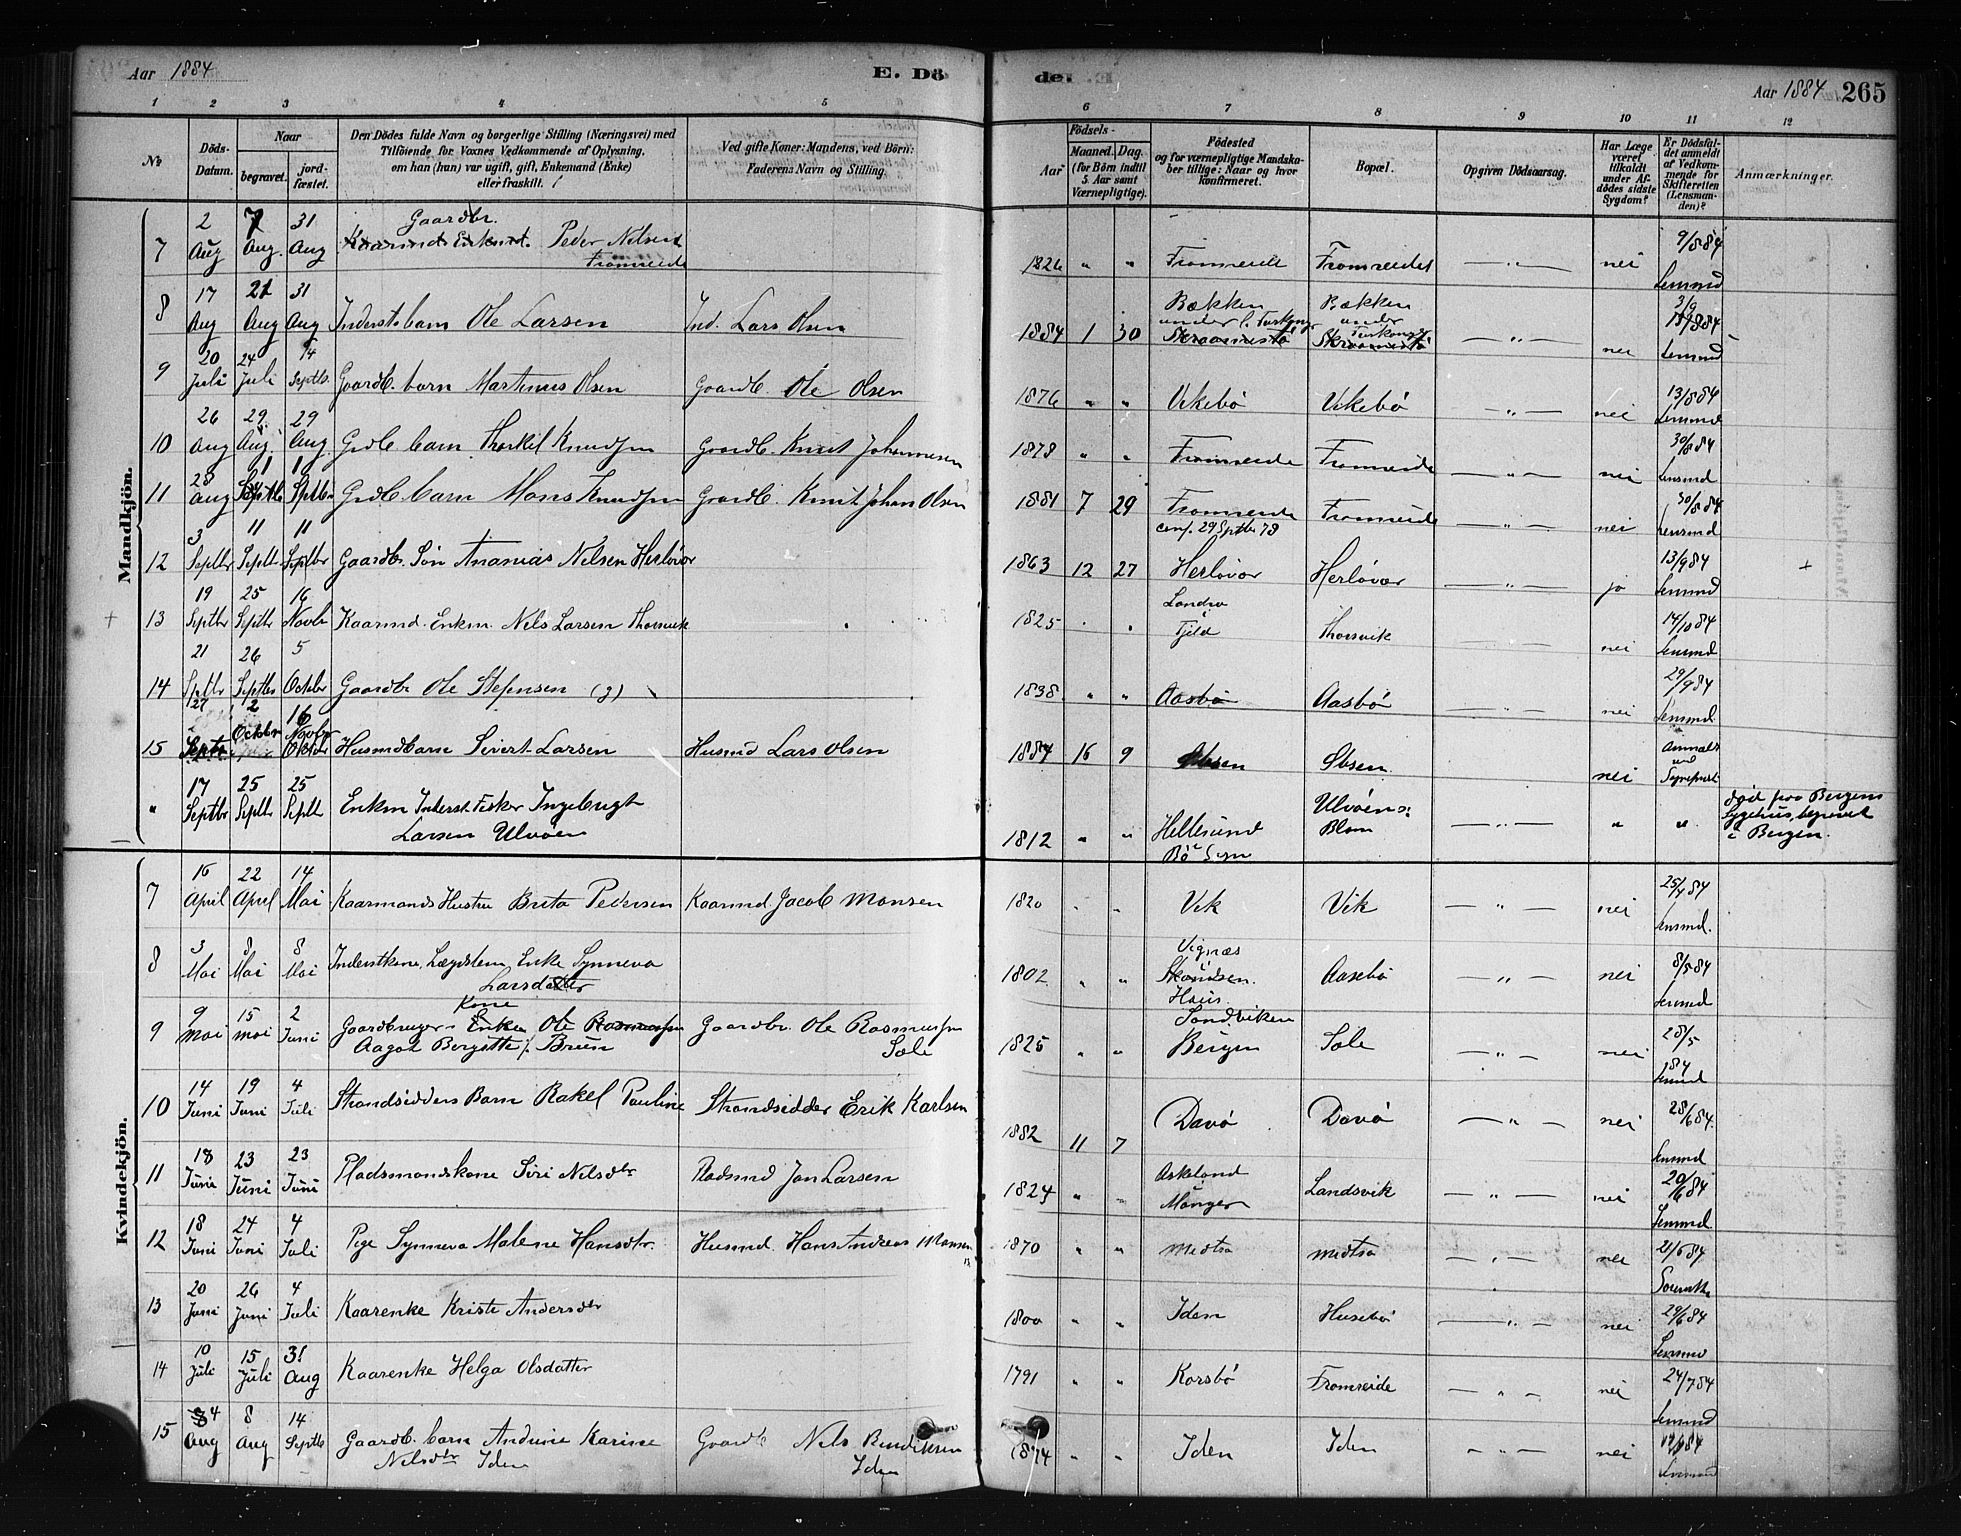 Aar 1884
E. Dö
de.
Aar 1884 265
1 2 3 4 5 6 7 8 9 10 11 12
No
Döds-Datum.
Naar
begravet.
jord-fæstet.
Den Dödes fulde Navn og borgerlige Stilling (Næringsvei) med
Tilföiende for Voxnes Vedkommende af Oplysning,
om han (hun) var ugift, gift, Enkemand (Enke)
eller fraskilt.
Ved gifte Koner: Mandens, ved Börn:
Faderens Navn og Stilling.
Födsels-
Aar
Maaned. Dag.
(for Börn indtil
5 Aar samt
Værnepligtige).
Födested
og for værnepligtige Mandska-
ber tillige: Naar og hvor
Konfirmeret.
Bopæl.
Opgiven Dödsaarsag.
Har Læge
været
tilkaldt
under Af-
dödes sidste
Sygdom?
Er Dödsfal-
det anmeldt
af Vedkom-
mende for
Skifteretten
(Lensman-
den)?
Anmærkninger.
Mandkjön.
7 2 Aug 7 Aug. 31 Aug Gaardbr. Peder Nilsen Fromreide 1826 " " Fromreide Fromreidet — " — nei 9/8 84 Lensmd
8 17 Aug 21 Aug 31 Aug Inderstsbarn Ole Larsen Ind. Lars Olsen 1884 1 30 Bækken under Bækken under — " — nei Lensmd
9 20 Juli 24 Juli 14 Septbr. Gaardb. barn Martinus Olsen Gaardb. Ole Olsen 1876 " " Vikebø Vikebø — " — nei 13/8 84 Lensmd
10 26 Aug 29 Aug. 29 Aug Grdb. barn Thorkil Knudsen Gaardb. Knut Johannesen 1878 " " Fromreide Fromreide — " — nei 30/8 84 Lensmd
11 28 Aug 1 Septbr 1 Septbr Grdb barn Mons Knudsen Gaardb. Knut Johan Olsen 1881 7 29 Fromreide Fromreide — " — nei 30/8 84 Lensmd
12 3 Septbr 11 Septbr. 11 Septbr Gaardbr. Søn Ananias Nilsen Herløvær 1863 12 27 conf. 29 Septbr 78 Herløvær Herløvær — " — jo 13/9 84 Lensmd +
+ 13 19 Septbr 25 Septbr 16 Novbr Kaarmd. Enkm. Nils Larsen Thorsvik 1825 " " Landro i Fjeld Thorsvik nei 14/10 84 Lensmd
14 21 Septbr 26 Septbr 5 Octobr Gaardbr Ole Stefensen (g) 1838 " " Aasbø Aasbø nei 29/9 84 Lensmd.
15 27 Septbr 2 Octobr 16 Novbr Husmdbarn Sivert Larsen Husmd Lars Olsen 1884 16 9 Øbsen nei Anmeldt
" 17 Septbr 25 Septbr 25 Septbr Enkm Inderst Fisker Ingebrigt Larsen Ulvøen 1812 " " Hellesund Bø Sogn Ulvøen i Blom — " — " " død paa Bergens Sygehus, begravet i Bergen.
Kvindekjön.
7 16 April 22 April 14 Mai Kaarmands Hustru Brita Pedersen Kaarmd. Jacob Monsen 1820 " " Vik Vik — " — nei 25/4 84 Lensmd.
8 3 Mai 8 Mai 8 Mai Inderstkone, Lægdslem, Enke Synneva Larsdatter 1802 " " Vignæs Haus. Aasebø — " — nei 8/5 84 Lensmd
9 9 Mai 15 Mai 2 Juni Gaardbruger Kone Aagot Bergitte Bruun Gaardbr. Ole Rasmussen Sæle 1825 " " Sandviken Bergen Sæle — " — nei 28/5 84 Lensmd
10 14 Juni 19 Juni 4 Juli Strandsidders Barn Rakel Pauline Strandsidder Erik Karlsen 1882 11 7 Davø Davø — " — nei 28/6 84. Lensmd
11 18 Juni 23 Juni 23 Juni Pladsmandskone Siri Nilsdtr Pladsmd Jan Larsen 1824 " " Askland Manger Landsvik — " — nei 20/6 84 Lensmd
12 18 Juni 24 Juni 4 Juli Pige Synneva Malene Hansdtr. Husmd. Hans Andreas Monsen 1870 " " Midtsø Midtsø — " — nei 21/6 84
13 20 Juni 26 Juni 4 Juli Kaarenke Kristi Andersdtr 1800 " " Iden Husebø — " — nei 29/6 84 Lensmd
14 10 Juli 15 Juli 31 Aug Kaarenke Helga Olsdatter 1791 " " Korsbø Fromreide — " — nei 24/7 84 Lensmd
15 4 Aug 8 Aug 14 Septbr Gaardb. barn Andrine Karine Nilsdtr Iden Gaardb Nils Bendiksen Iden 1874 " " Iden Iden — " — nei Lensmd